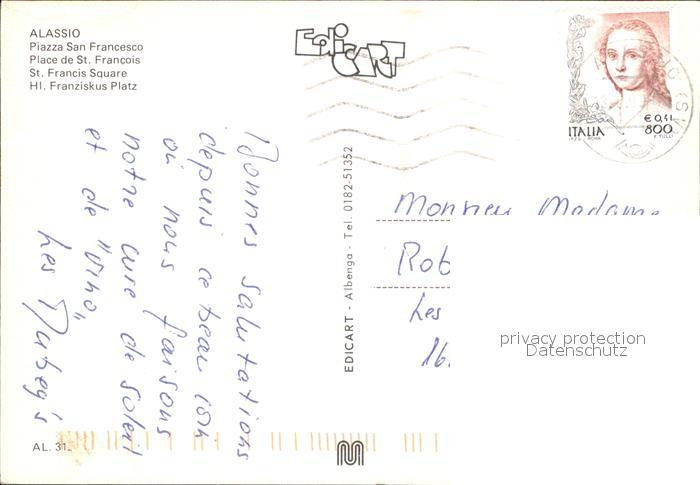 ALASSIO
Piazza San Francesco
Place de St. François
St. Francis Square
Hl. Franziskus Platz
EdiCART
€ 0,41
ITALIA 800
Bonnes salutations
depuis ce beau coin
où nous faisons
notre cure de soleil
et de "vino"
Les
EDICART - Albenga - Tel. 0182-51352
Monsieur Madame
Rob
Les
16.
privacy protection
Datenschutz
AL. 31